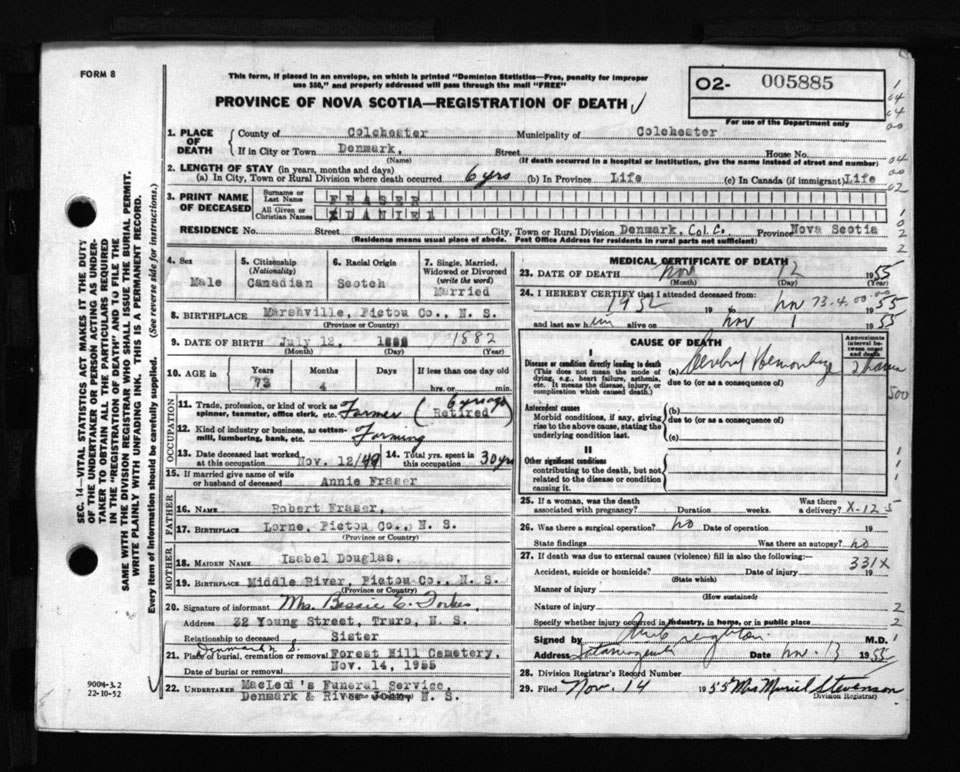 FORM 8
This form, if placed in an envelope, on which is printed "Dominion Statistics—Free, penalty for improper
use $50," and properly addressed will pass through the mail "FREE"
02- 005885
For use of the Department only
PROVINCE OF NOVA SCOTIA—REGISTRATION OF DEATH
1. PLACE OF DEATH County of Colchester Municipality of Colchester
If in City or Town Denmark, Street House No.
(Name) (If death occurred in a hospital or institution, give the name instead of street and number)
2. LENGTH OF STAY (in years, months and days)
(a) In City, Town or Rural Division where death occurred 6 yrs (b) In Province Life (c) In Canada (if immigrant) Life
3. PRINT NAME OF DECEASED Surname or Last Name FRASER
All Given or Christian Names DANIEL
RESIDENCE No. Street City, Town or Rural Division Denmark, Col. C. Province Nova Scotia
(Residence means usual place of abode. Post Office Address for residents in rural parts not sufficient)
4. Sex Male
5. Citizenship (Nationality) Canadian
6. Racial Origin Scotch
7. Single, Married, Widowed or Divorced (write the word) Married
8. BIRTHPLACE Marshville, Pictou Co., N. S.
(Province or Country)
9. DATE OF BIRTH July 12, 1882
(Month) (Day) (Year)
10. AGE in Years 73 Months 4 Days If less than one day hrs. or min.
OCCUPATION
11. Trade, profession, or kind of work as spinner, teamster, office clerk, etc. Farmer (6 yrs ago Retired)
12. Kind of industry or business, as cotton-mill, lumbering, bank, etc. Farming
13. Date deceased last worked at this occupation Nov. 12/49 14. Total yrs. spent in this occupation 30 yrs
15. If married give name of wife or husband of deceased Annie Fraser
FATHER
16. Name Robert Fraser,
17. Birthplace Lorne, Pictou Co., N. S.
(Province or Country)
MOTHER
18. Maiden Name Isabel Douglas,
19. Birthplace Middle River, Pictou Co., N. S.
(Province or Country)
20. Signature of informant Mrs. Bessie E. Forbes,
Address 32 Young Street, Truro, N. S.
Relationship to deceased Sister
Denmark N. S.
21. Place of burial, cremation or removal Forest Hill Cemetery,
Date of burial or removal Nov. 14, 1955
22. UNDERTAKER MacLeod's Funeral Service,
Denmark & River John, N. S.
MEDICAL CERTIFICATE OF DEATH
23. DATE OF DEATH Nov 12 1955
(Month) (Day) (Year)
24. I HEREBY CERTIFY that I attended deceased from:
1952 19 to Nov 73-4.00.00 1955
and last saw him alive on Nov 1 1955
CAUSE OF DEATH
Approximate interval between onset and death
I
Disease or condition directly leading to death (a) Cerebral Hemorrhage 2 hours
(This does not mean the mode of dying, e.g., heart failure, asthenia, etc. It means the disease, injury, or complication which caused death.)
due to (or as a consequence of)
Antecedent causes (b)
Morbid conditions, if any, giving rise to the above cause, stating the underlying condition last.
due to (or as a consequence of)
(c)
II
Other significant conditions
contributing to the death, but not related to the disease or condition causing it.
500
25. If a woman, was the death associated with pregnancy? Duration weeks. Was there a delivery? X-12-5
26. Was there a surgical operation? no Date of operation 19
State findings Was there an autopsy? no
27. If death was due to external causes (violence) fill in also the following:— 331X
Accident, suicide or homicide? Date of injury 19
(State which)
Manner of injury
(How sustained)
Nature of injury
Specify whether injury occurred in industry, in home, or in public place
Signed by M.D.
Address Tatamagouche Date Nov. 13 1955
28. Division Registrar's Record Number
29. Filed Nov. 14 1955 Mrs Muriel Stevenson
Division Registrar
SEC. 14—VITAL STATISTICS ACT MAKES IT THE DUTY
OF THE UNDERTAKER OR PERSON ACTING AS UNDER-
TAKER TO OBTAIN ALL THE PARTICULARS REQUIRED
IN THE "REGISTRATION OF DEATH" AND TO FILE THE
SAME WITH THE DIVISION REGISTRAR WHO SHALL ISSUE THE BURIAL PERMIT.
WRITE PLAINLY WITH UNFADING INK. THIS IS A PERMANENT RECORD.
Every item of information should be carefully supplied. (See reverse side for instructions.)
9004-3.2
22-10-52